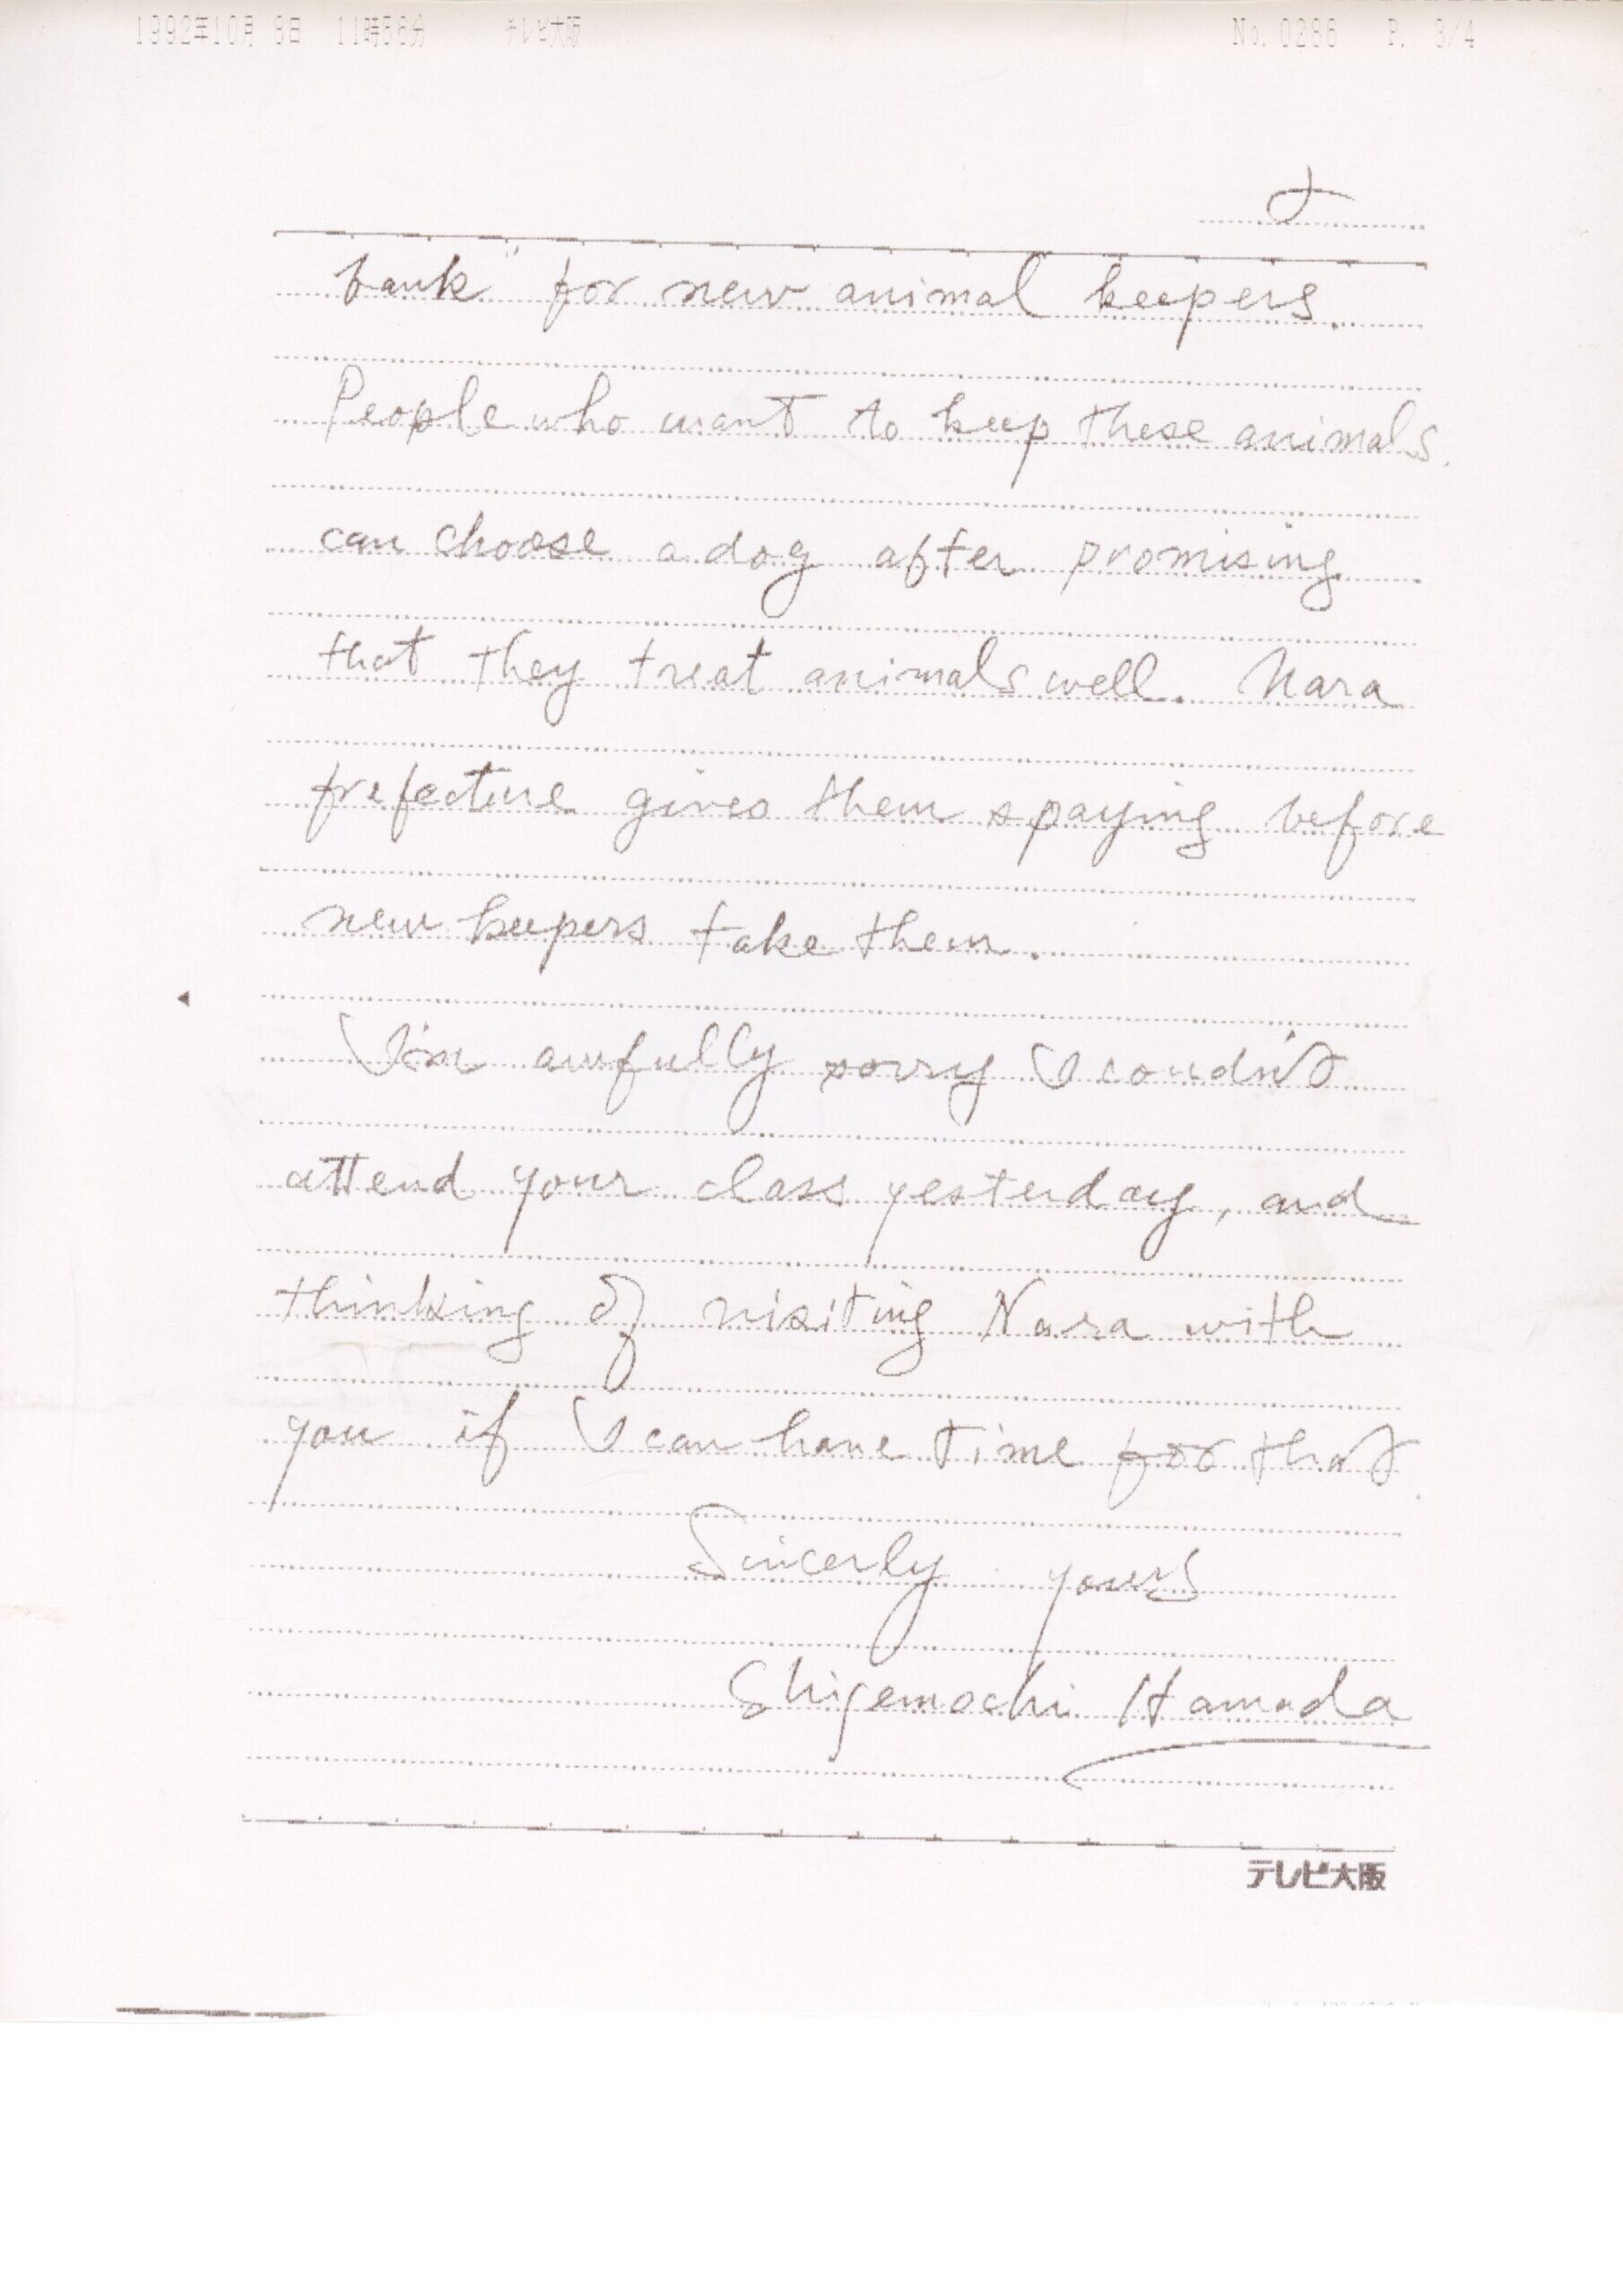 1992年10月 8日 11時56分 テレビ大阪 No. 0286 P. 3/4
bank" for new animal keepers.
People who want to keep these animals
can choose a dog after promising
that they treat animals well. Nara
prefecture gives them spaying before
new keepers take them.
I'm awfully sorry I coudn't
attend your class yesterday, and
thinking of visiting Nara with
you if I can have time for that.
Sincerly yours
Shigemochi Hamada
テレビ大阪